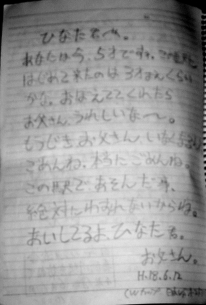 ひなたへ。
あなたは今、5才ですね。この駅に
はじめて来たのは3才ぐらい
かな。おぼえててくれたら
お父さんうれしいな〜。
もうじきお父さんいなくなる
ごめんね。本とごめんね。
この駅であそんだ事、
絶対わすれないからね。
あいしてるよ、ひなた。
お父さん。
H.18.6.12